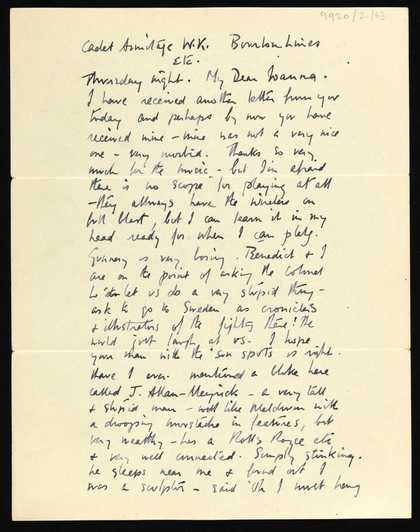 9920/2/63
Cadet Armitage W.K. Bourlon Lines
Etc.
Thursday night. My Dear Joanna.
I have received another letter from you
today and perhaps by now you have
received mine – mine was not a very nice
one – very morbid. Thanks so very
much for the music – but I'm afraid
there is no scope for playing at all
– they allways have the wireless on
full blast, but I can learn it in my
head ready for when I can play.
Gunnery is very boring. Benedict & I
are on the point of asking the Colonel
to let us do a very stupid thing –
ask to go to Sweden as croniclers
& illustrators of the fighting there! He
would just laugh at us. I hope
your man with the sun spots is right.
Have I ever mentioned a bloke here
called J. Allan-Meyrick – a very tall
& stupid man – with like Maldwin with
a drooping mustache in features, but
very wealthy – has a Rolls Royce etc
& very well connected. Simply stinking.
he sleeps near me & found out I
was a sculptor – said 'Oh I must bring